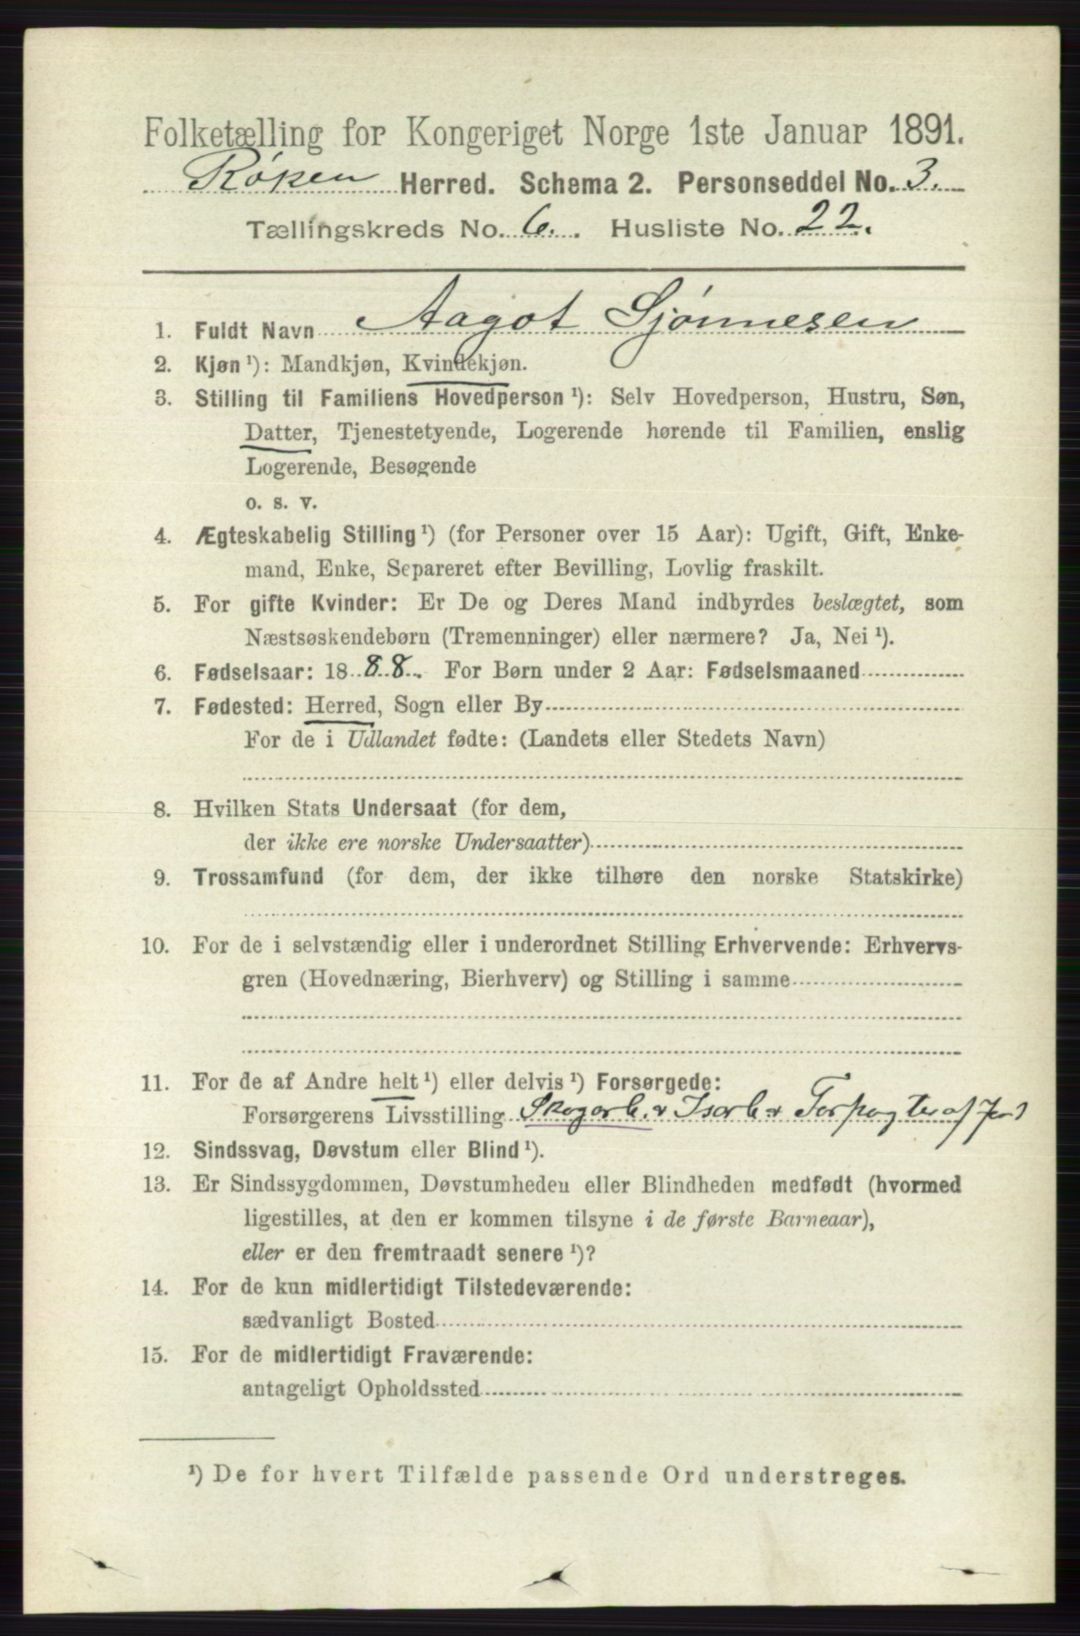 Folketælling for Kongeriget Norge 1ste Januar 1891.
Røken Herred. Schema 2. Personseddel No. 3.
Tællingskreds No. 6. Husliste No. 22.
1. Fuldt Navn Aagot Sjønnesen
2. Kjøn ¹): Mandkjøn, Kvindekjøn.
3. Stilling til Familiens Hovedperson ¹): Selv Hovedperson, Hustru, Søn,
Datter, Tjenestetyende, Logerende hørende til Familien, enslig
Logerende, Besøgende
o. s. v.
4. Ægteskabelig Stilling ¹) (for Personer over 15 Aar): Ugift, Gift, Enke-
mand, Enke, Separeret efter Bevilling, Lovlig fraskilt.
5. For gifte Kvinder: Er De og Deres Mand indbyrdes beslægtet, som
Næstsøskendebørn (Tremenninger) eller nærmere? Ja, Nei ¹).
6. Fødselsaar: 1888. For Børn under 2 Aar: Fødselsmaaned
7. Fødested: Herred, Sogn eller By
For de i Udlandet fødte: (Landets eller Stedets Navn)
8. Hvilken Stats Undersaat (for dem,
der ikke ere norske Undersaatter)
9. Trossamfund (for dem, der ikke tilhøre den norske Statskirke)
10. For de i selvstændig eller i underordnet Stilling Erhvervende: Erhvervs-
gren (Hovednæring, Bierhverv) og Stilling i samme
11. For de af Andre helt ¹) eller delvis ¹) Forsørgede:
Forsørgerens Livsstilling Skogarb. & Isarb & Forpagter af Jord
12. Sindssvag, Døvstum eller Blind ¹).
13. Er Sindssygdommen, Døvstumheden eller Blindheden medfødt (hvormed
ligestilles, at den er kommen tilsyne i de første Barneaar),
eller er den fremtraadt senere ¹)?
14. For de kun midlertidigt Tilstedeværende:
sædvanligt Bosted
15. For de midlertidigt Fraværende:
antageligt Opholdssted
¹) De for hvert Tilfælde passende Ord understreges.